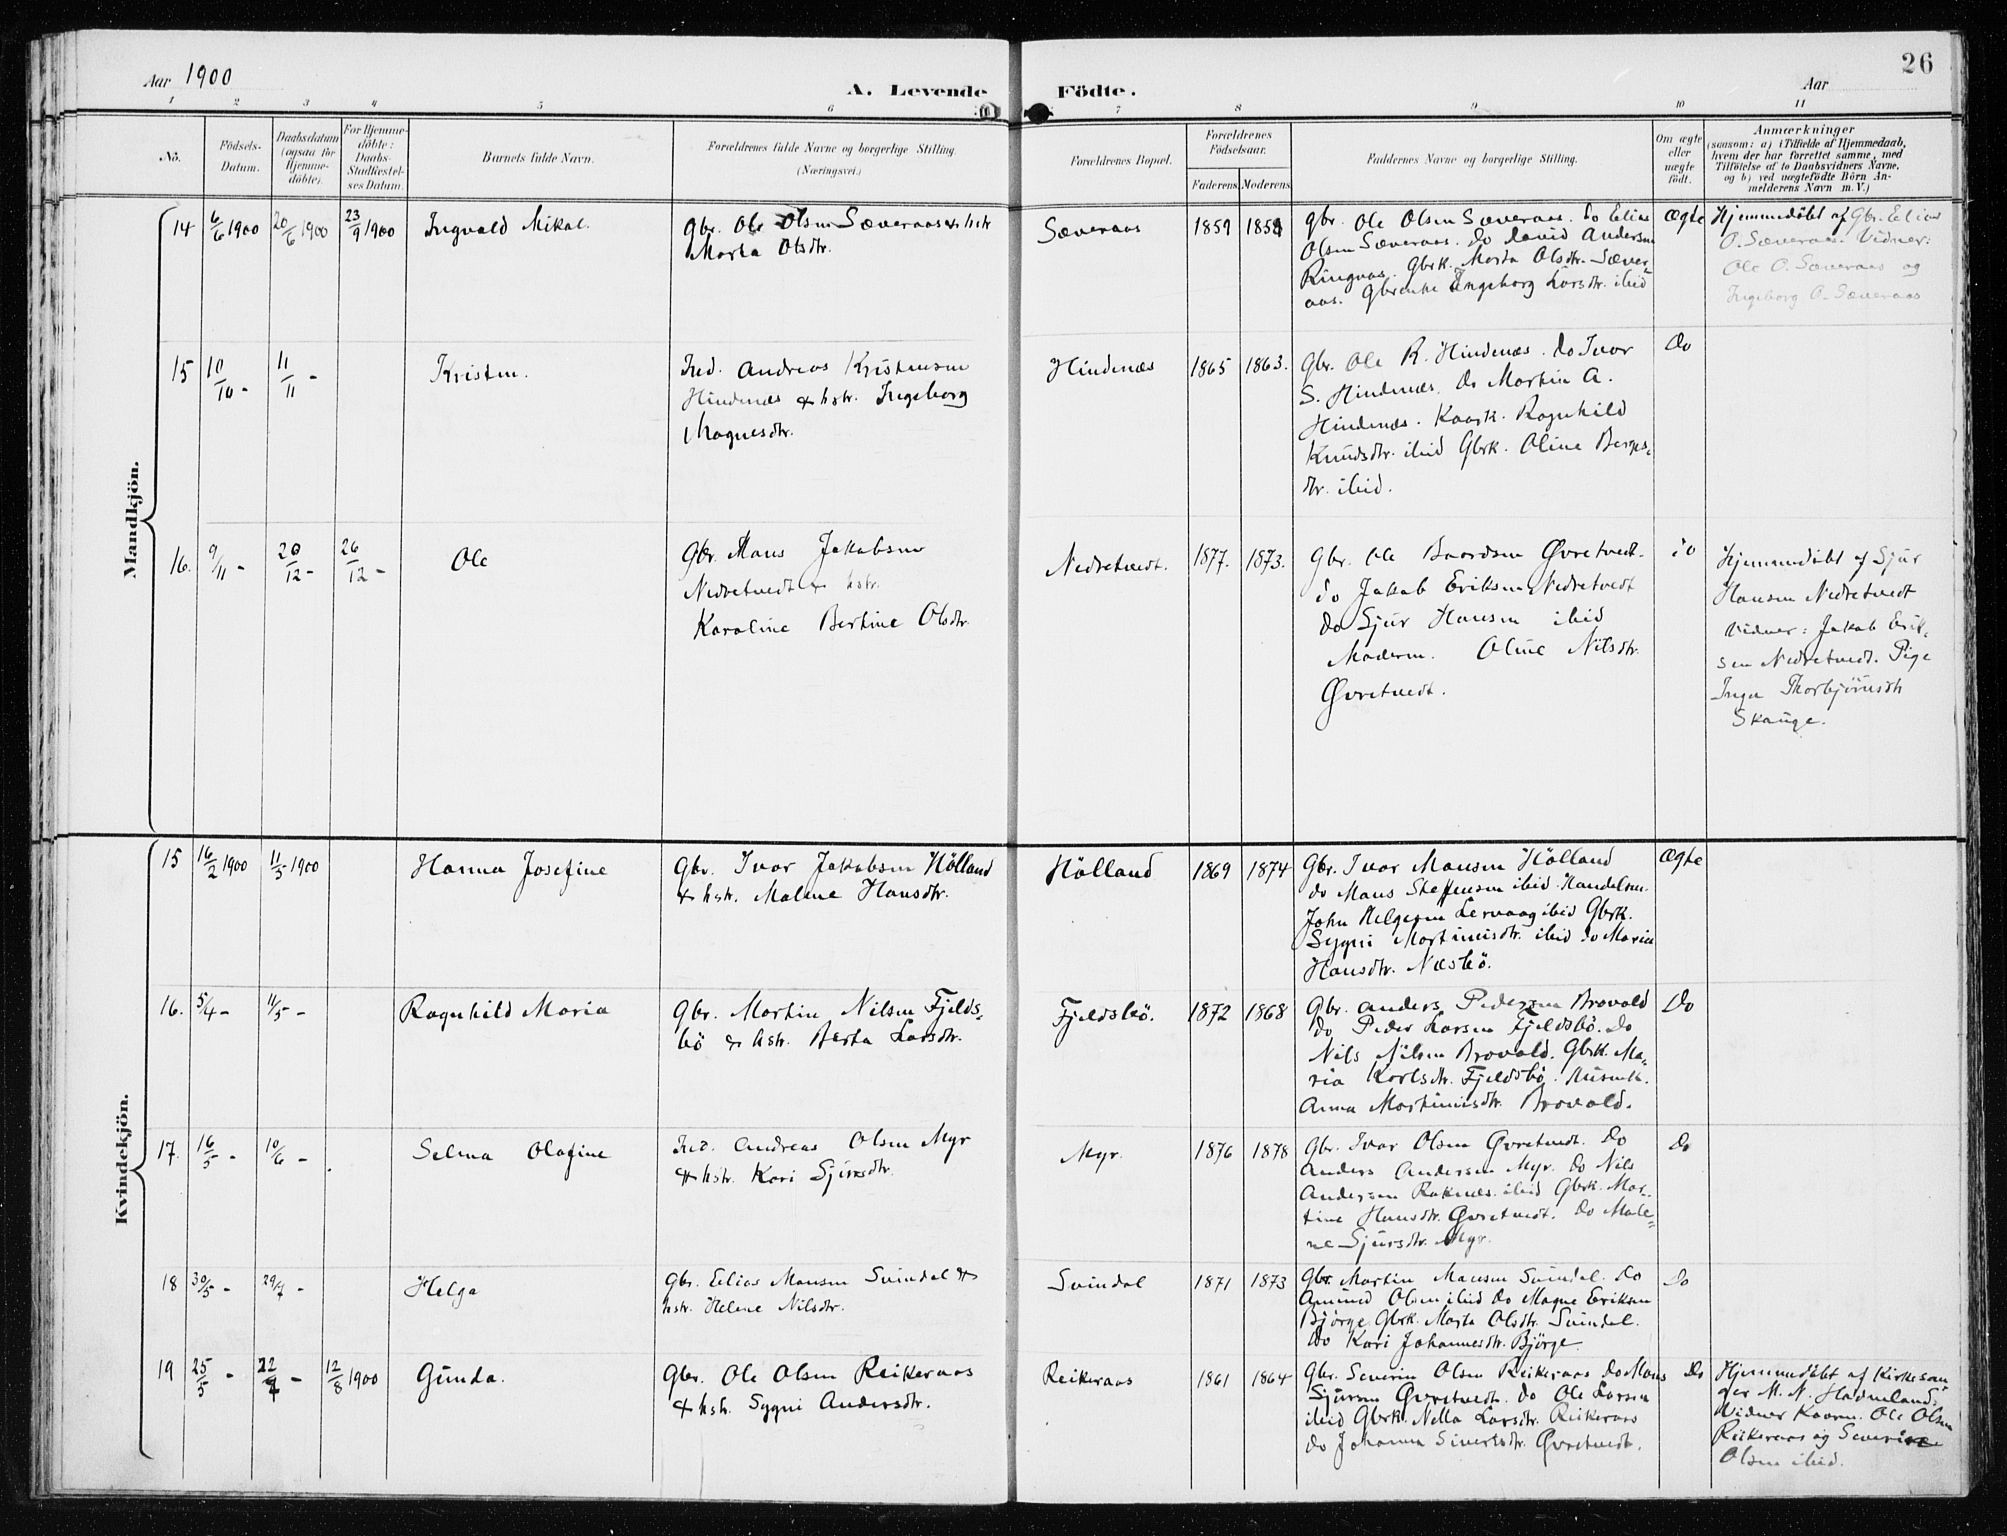 26
Aar 1900
A. Levende Födte.
Aar
1 2 3 4 5 6 7 8 9 10 11
No.
Födsels-
Datum.
Daabsdatum
(ogsaa for
Hjemme-
döbte).
For Hjemme-
döbte:
Daabs-
Stadfæstel-
ses Datum.
Barnets fulde Navn.
Forældrenes fulde Navne og borgerlige Stilling.
(Næringsvei.)
Forældrenes Bopæl.
Forældrenes
Födselsaar.
Faderens Moderens
Faddernes Navne og borgerlige Stilling.
Om ægte
eller
uægte
födt.
Anmærkninger
(saasom: a) i Tilfælde af Hjemmedaab,
hvem der har forrettet samme, med
Tilföielse af to Daabsvidners Navne,
og b) ved uægtefödte Börn An-
melderens Navn m. V.)
Mandkjön.
14 6/6 1900 20/6 1900 23/9 1900
Ingvald Mikal.
Gbr. Ole Olsen Sæveraas & hstr
Marta Olsdtr.
Sæveraas
1859 1859
Gbr. Ole Olsen Sæveraas. do Elias
Olsen Sæveraas. do David Andersen
Ringaas. Gbrk. Marta Olsdtr. Sæver-
aas. Gbrenke Ingeborg Larsdtr. ibid
Ægte
Hjemmedöbt af Gbr. Elias
O. Sæveraas. Vidner:
Ole O. Sæveraas og
Ingeborg O. Sæveraas
15 10/10 - 11/11 -
Kristen.
Ind. Andreas Kristensen
Hindenæs & hstr. Ingeborg
Magnesdtr.
Hindenæs
1865 1863.
Gbr. Ole R. Hindenæs. do Ivar
S. Hindenæs. do Martin A.
Hindenæs. Kaark. Ragnhild
Knudsdtr. ibid Gbrk. Oline Berges-
dtr. ibid.
do
16. 9/11 - 20/12 - 26/12 -
Ole
Gbr. Mans Jakobsen
Nedretvedt & hstr.
Karoline Bertine Olsdtr.
Nedretvedt.
1877. 1873.
Gbr. Ole Baardsen Øvretvedt.
do Jakob Eriksen Nedretvedt
do Sjur Hansen ibid
Moderen. Oline Nilsdtr.
Øvretvedt.
do
Hjemmedöbt af Sjur
Hansen Nedretvedt
Vidner: Jakob Erik-
sen Nedretvedt. Pige
Inga Thorbjörnsdtr
Skauge.
Kvindekjön.
15 16/2 1900 11/3 1900
Hanna Josefine
Gbr. Ivar Jakobsen Hölland
& hstr. Malene Hansdtr.
Hölland
1869 1874
Gbr. Ivar Mansen Hölland
do Mans Steffensen ibid. Handelsm.
John Helgesen Lervaag ibid Gbrk.
Sygni Martinusdtr. ibid do Maria
Hansdtr. Næsbö.
Ægte
16. 5/4 - 11/5 -
Ragnhild Maria
Gbr. Martin Nilsen Fjelds-
bö & hstr. Berta Larsdtr.
Fjeldsbö.
1872 1868
Gbr. Anders Pedersen Brovold
do Peder Larsen Fjeldsbö. do
Nils Nilsen Brovold. Gbrk. Ma-
ria Karlsdtr. Fjeldsbö.
Anna Martinusdtr. Brovold.
Do
17. 16/5 - 10/6 -
Selma Olafine
Ind. Andreas Olsen Myr
& hstr. Kari Sjursdtr.
Myr.
1876 1878
Gbr. Ivar Olsen Øvretvedt. Do
Anders Andersen Myr. do Nils
Andersen Raknæs. ibid Gbrk. Mar-
tine Hansdtr. Øvretvedt. do Male-
ne Sjursdtr. Myr.
Do
18 30/5 - 29/7 -
Helga
Gbr. Elias Mansen Svindal &
hstr. Helene Nilsdtr.
Svindal
1871 1873
Gbr. Martin Mansen Svindal. do
Amund Olsen ibid do Magne Eriksen
Björge. Gbrk. Marta Olsdtr. Svindal.
Do Kari Johannesdtr. Björge
do
19 25/5 - 22/7 - 12/8 1900
Gunda.
Gbr. Ole Olsen Reikeraas
& hstr. Sygni Andersdtr.
Reikeraas
1861 1864
Gbr. Severin Olsen Reikeraas do Mans
Sjursen Øvretvedt. do Ole Larsen
ibid Gbrk. Nella Larsdtr. Reikeraas
do Johanna Sivertsdtr. Øvretvedt.
Do
Hjemmedöbt af Kirkesan-
ger M. N. Hadmeland.
Vidner Kaarm. Ole Olsen
Reikeraas og Severine
Olsen ibid.